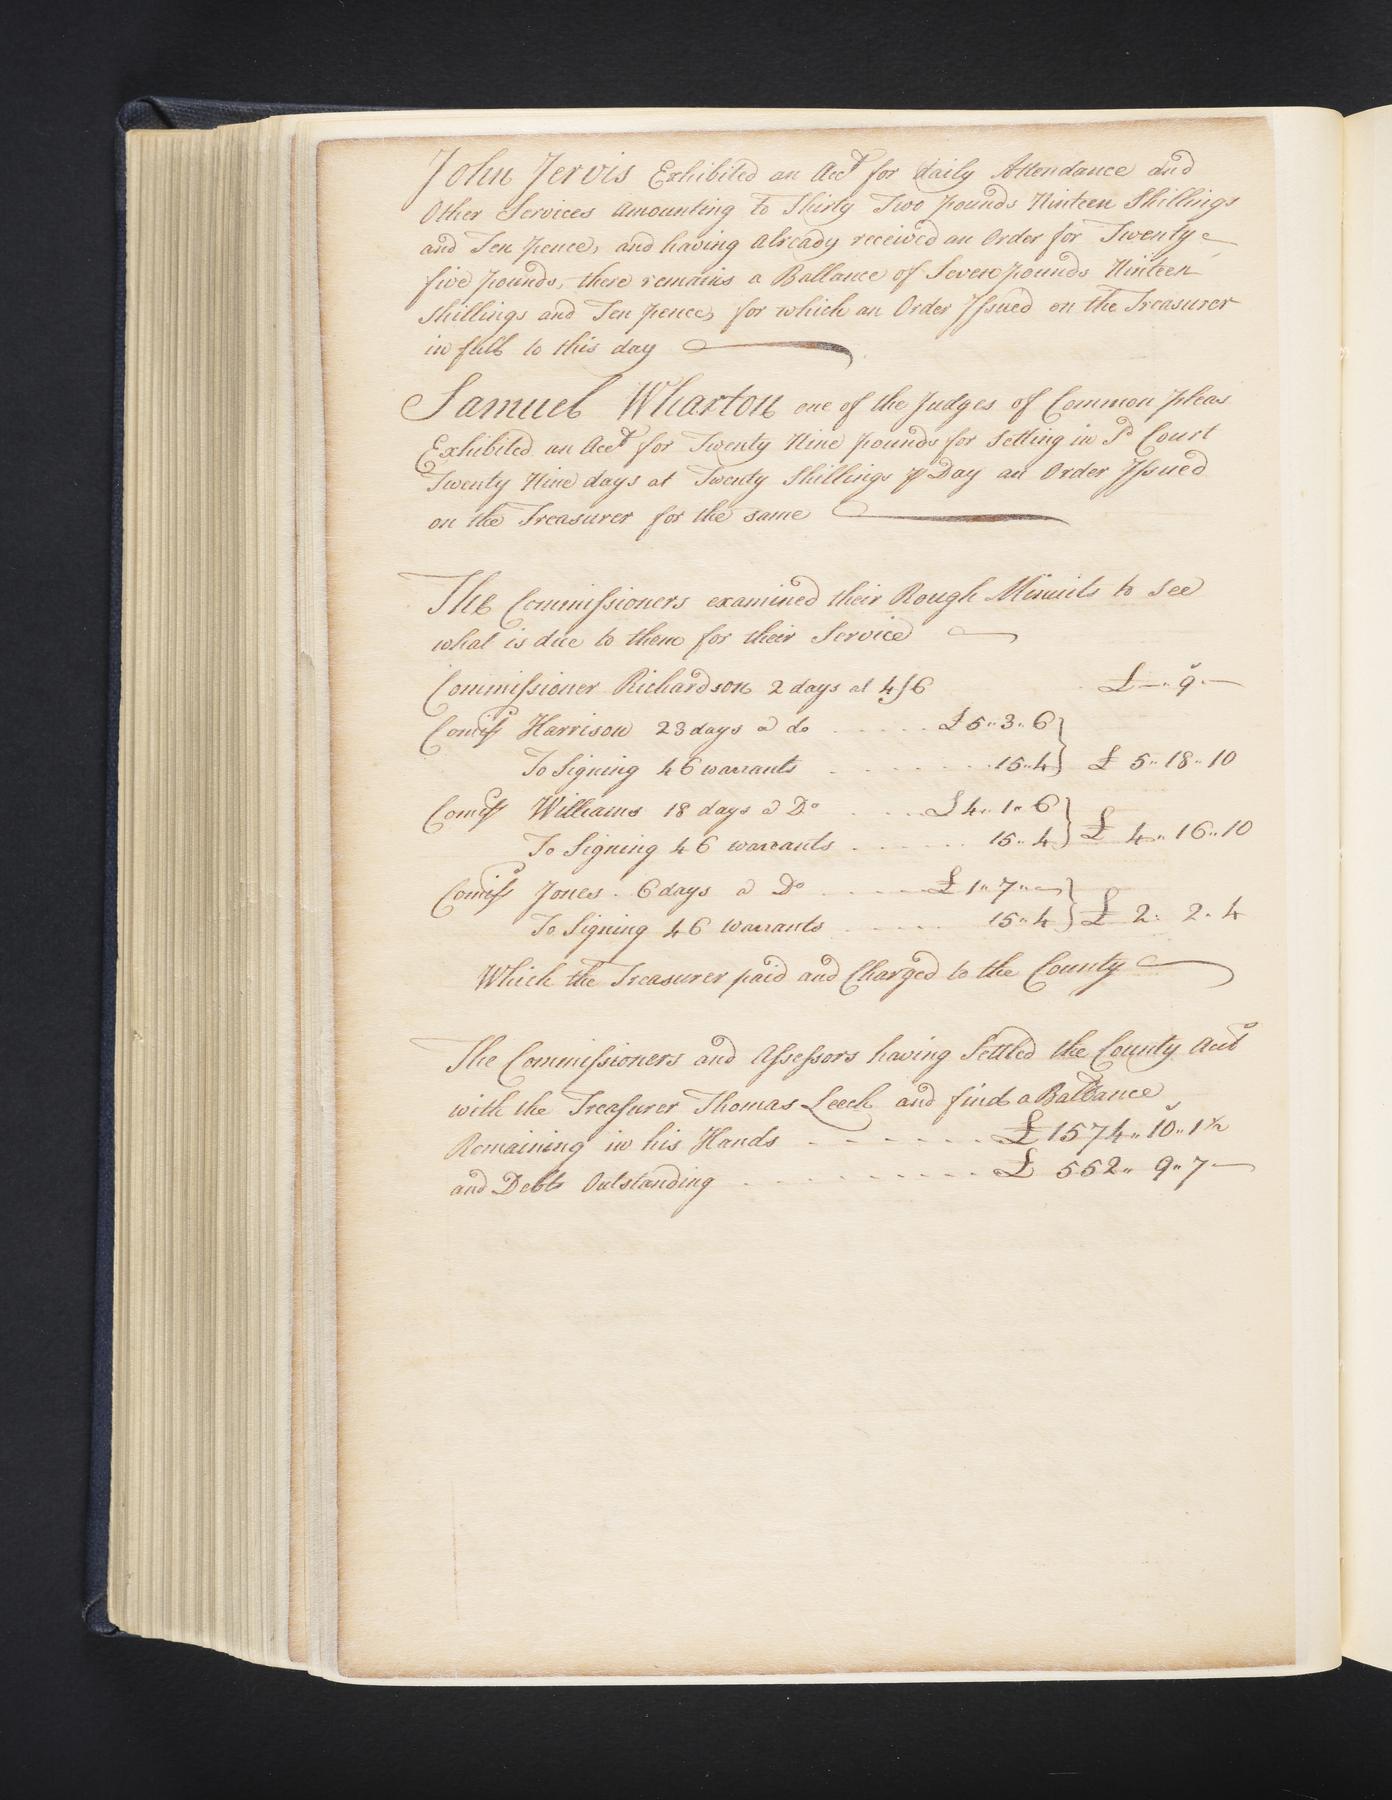 John Jervis Exhibited an Acct for daily Attendance and
Other Services amounting to Thirty Two pounds Ninteen Shillings
and Ten pence, and having already received an Order for Twenty
five pounds, there remains a Ballance of Seven pounds Ninteen
Shillings and Ten pence, for which an Order Issued on the Treasurer
in full to this day
Samuel Wharton one of the Judges of Common pleas
Exhibited an Acct for Twenty Nine pounds for Setting in Sd Court
Twenty Nine days at Twenty Shillings ⅌ Day an Order Issued
on the Treasurer for the same
The Commissioners examined their Rough Minuits to See
what is due to them for their Service
Commissioner Richardson 2 days at 4/6 £ — 9 —
Comisr Harrison 23 days a do £5 " 3 " 6
To Signing 46 warrants 15 " 4 } £ 5 " 18 " 10
Comisr Williams 18 days a Do £4 " 1 " 6
To Signing 46 warrants 15 " 4 } £ 4 " 16 " 10
Comisr Jones 6 days a Do £1 " 7 " —
To Signing 46 warrants 15 " 4 } £ 2 " 2 " 4
Which the Treasurer paid and Charged to the County
The Commissioners and Assessors having Settled the County Acct
with the Treasurer Thomas Leech and find a Ballance
Remaining in his Hands £1574 " 10 " 1½
and Debts Outstanding £ 552 " 9 " 7 —